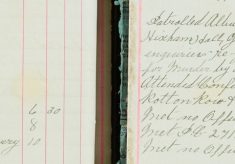 6 30
8
10
Patrolled Albu
Hexham
enquiries re
for Murder by
Attended Confe
Rotton Row &
Met no Offic
Met P.C 271
Met no Offic